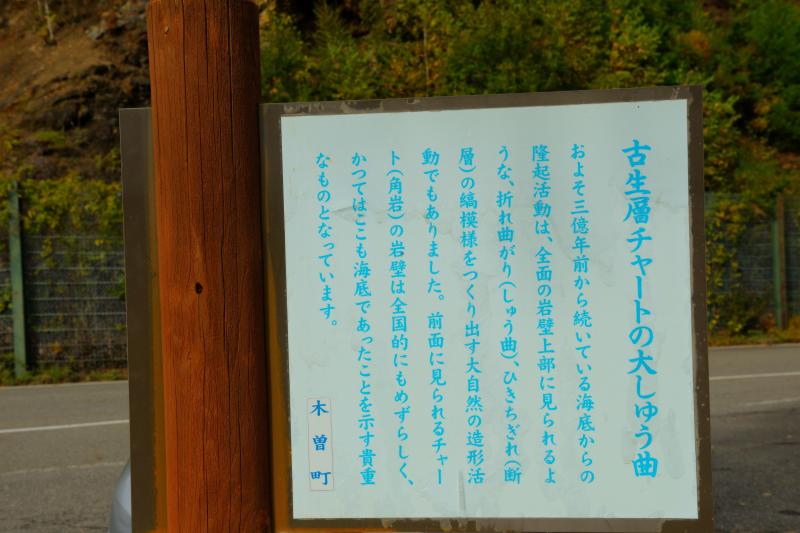 古生層チャートの大しゅう曲
およそ三億年前から続いている海底からの
隆起活動は、全面の岩壁上部に見られるよ
うな、折れ曲がり(しゅう曲)、ひきちぎれ(断
層)の縞模様をつくり出す大自然の造形活
動でもありました。前面に見られるチャー
ト(角岩)の岩壁は全国的にもめずらしく、
かつてはここも海底であったことを示す貴重
なものとなっています。
木曽町